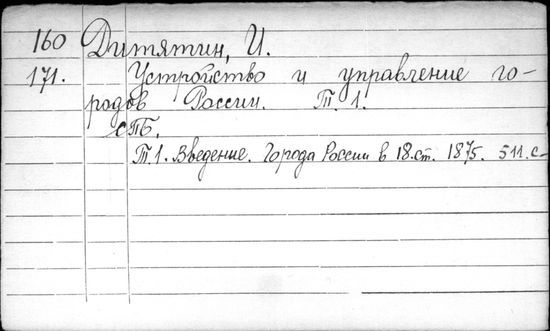 160 Дитятин, И.
171. Устройство и управление го-
родов России. Т. 1.
СПБ.
Т.1. Введение. Города России в 18.ст. 1875. 511.с-